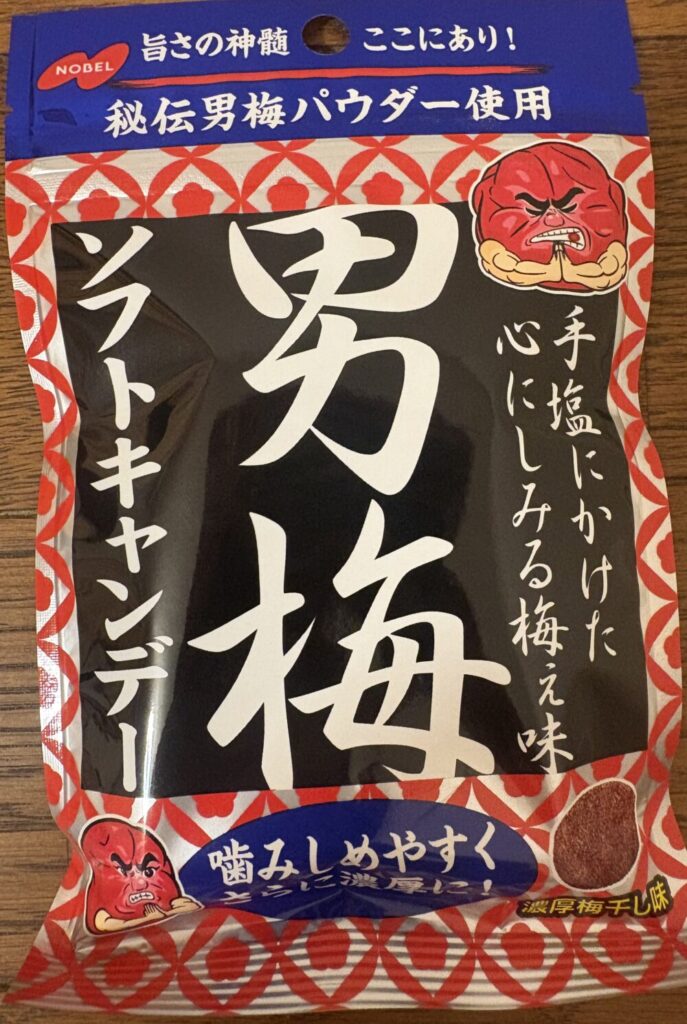 旨さの神髄 ここにあり!
NOBEL
秘伝男梅パウダー使用
男梅
ソフトキャンデー
手塩にかけた
心にしみる梅ぇ味
噛みしめやすく
さらに濃厚に!
濃厚梅干し味